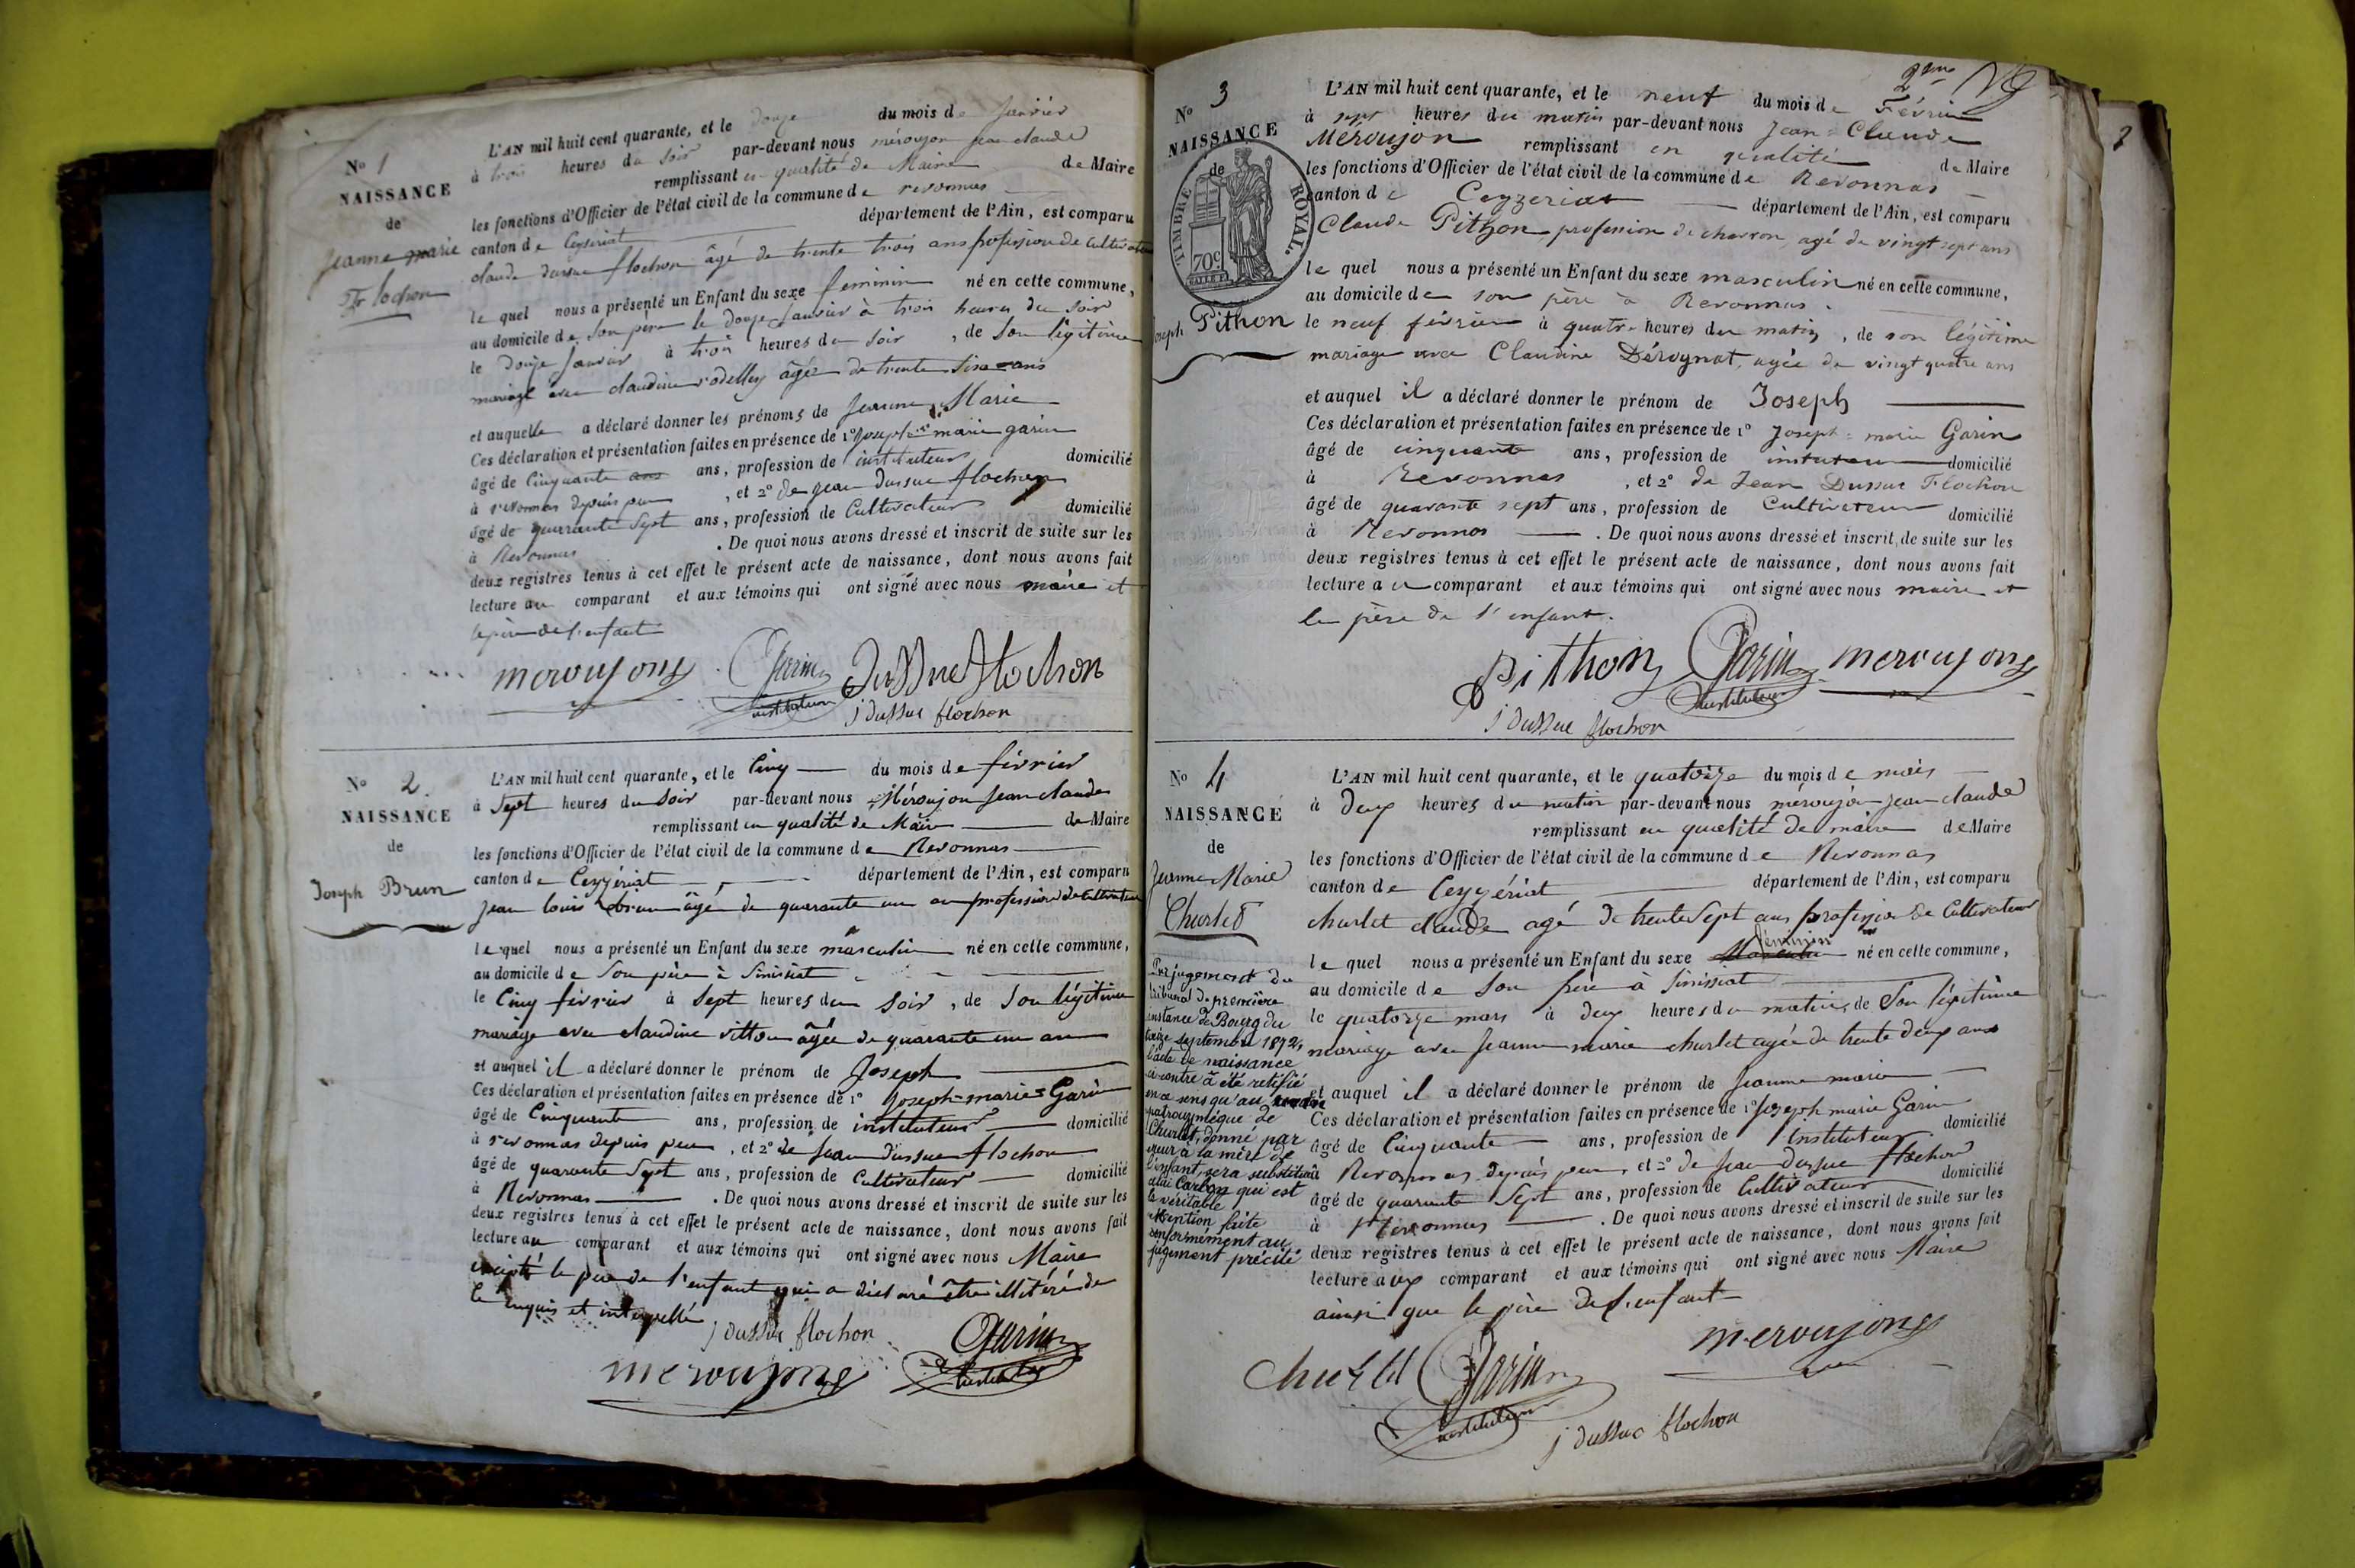 N° 1
NAISSANCE
de
Jeanne marie
Flochon
L'AN mil huit cent quarante, et le douze du mois de Janvier
à trois heures du soir par-devant nous méroujon jean claude
remplissant en qualité de Maire de Maire
les fonctions d'Officier de l'état civil de la commune de revonnas
canton de Ceyzeriat département de l'Ain, est comparu
claude dussuc flochon âgé de trente trois ans profession de Cultivateur
le quel nous a présenté un Enfant du sexe feminin né en cette commune,
au domicile de son père le douze Janvier à trois heures du soir
le douze Janvier à trois heures du soir, de son légitime
mariage avec claudine rodelley âgée de trente ans
et auquelle a déclaré donner les prénoms de Jeanne Marie
Ces déclaration et présentation faites en présence de 1° Joseph marie garin
âgé de Cinquante ans ans, profession de instituteur domicilié
à revonnas depuis peu, et 2° de jean dussuc flochon
âgé de quarante Sept ans, profession de Cultivateur domicilié
à Revonnas. De quoi nous avons dressé et inscrit de suite sur les
deux registres tenus à cet effet le présent acte de naissance, dont nous avons fait
lecture au comparant et aux témoins qui ont signé avec nous maire et
le père de l'enfant
meroujong Garin DusSuc flochon
instituteur j dussuc flochon
N° 2.
NAISSANCE
de
Joseph Brun
L'AN mil huit cent quarante, et le Cinq du mois de février
à Sept heures du Soir par-devant nous Méroujon Jean claude
remplissant en qualité de Maire de Maire
les fonctions d'Officier de l'état civil de la commune de Revonnas
canton de Ceyzériat département de l'Ain, est comparu
Jean louis brun âgé de quarante un an profession de Cultivateur
le quel nous a présenté un Enfant du sexe masculin né en cette commune,
au domicile de Son père à Simissiat
le Cinq février à Sept heures du Soir, de Son légitime
mariage avec claudine vitton âgée de quarante un an
et auquel il a déclaré donner le prénom de Joseph
Ces déclaration et présentation faites en présence de 1° Joseph-marie=Garin
âgé de Cinquante ans, profession de instituteur domicilié
à revonnas depuis peu, et 2° de Jean dussuc flochon
âgé de quarante Sept ans, profession de Cultivateur domicilié
à Revonnas. De quoi nous avons dressé et inscrit de suite sur les
deux registres tenus à cet effet le présent acte de naissance, dont nous avons fait
lecture au comparant et aux témoins qui ont signé avec nous Maire
excepté le père de l'enfant qui a déclaré être illitéré de
ce enquis et interpellé
j dussuc flochon Garin
meroujong instituteur
2eme
N° 3
NAISSANCE
de
TIMBRE ROYAL.
70c
Joseph Pithon
L'AN mil huit cent quarante, et le neuf du mois de Février
à sept heures du matin par-devant nous Jean=Claude
Méroujon remplissant en qualité de Maire
les fonctions d'Officier de l'état civil de la commune de Revonnas
canton de Ceyzeriat département de l'Ain, est comparu
Claude Pithon, profession de charron, agé de vingt sept ans
le quel nous a présenté un Enfant du sexe masculin né en cette commune,
au domicile de son père à Revonnas.
le neuf février à quatre heures du matin, de son légitime
mariage avec Claudine Dérognat, agée de vingt quatre ans
et auquel il a déclaré donner le prénom de Joseph
Ces déclaration et présentation faites en présence de 1° Joseph=marie Garin
âgé de cinquante ans, profession de instituteur domicilié
à Revonnas, et 2° de Jean Dussuc Flochon
âgé de quarante sept ans, profession de Cultivateur domicilié
à Revonnas. De quoi nous avons dressé et inscrit de suite sur les
deux registres tenus à cet effet le présent acte de naissance, dont nous avons fait
lecture au comparant et aux témoins qui ont signé avec nous maire et
le père de l'enfant.
Pithon Garin meroujong
instituteur
j dussuc flochon
N° 4
NAISSANCE
de
Jeanne Marie
Churlet
Par jugement du
tribunal de première
instance de Bourg du
treize septembre 1872,
l'acte de naissance
ci-contre a été retifié
en ce sens qu'au
patronymique de
Churlet, donné par
erreur à la mère de
l'enfant, sera substitué
celui Carbon qui est
le véritable
Mention faite
conformement au
jugement précité
L'AN mil huit cent quarante, et le quatorze du mois de mars
à deux heures du matin par-devant nous méroujon jean claude
remplissant en qualité de maire de Maire
les fonctions d'Officier de l'état civil de la commune de Revonnas
canton de Ceyzériat département de l'Ain, est comparu
churlet claude agé de trente Sept ans profession de Cultivateur
féminin
le quel nous a présenté un Enfant du sexe Masculin né en cette commune,
au domicile de Son père à Simissiat
le quatorze mars à deux heures du matin, de Son légitime
mariage avec Jeanne marie churlet agée de trente deux ans
et auquel il a déclaré donner le prénom de Jeanne marie
Ces déclaration et présentation faites en présence de 1° Joseph marie Garin
âgé de Cinquante ans, profession de Instituteur domicilié
à Revonnas depuis peu, et 2° de Jean dussuc flochon
âgé de quarante Sept ans, profession de Cultivateur domicilié
à Revonnas. De quoi nous avons dressé et inscrit de suite sur les
deux registres tenus à cet effet le présent acte de naissance, dont nous avons fait
lecture aux comparant et aux témoins qui ont signé avec nous Maire
ainsi que le père de l'enfant
Churlet Garin meroujong
instituteur j dussuc flochon